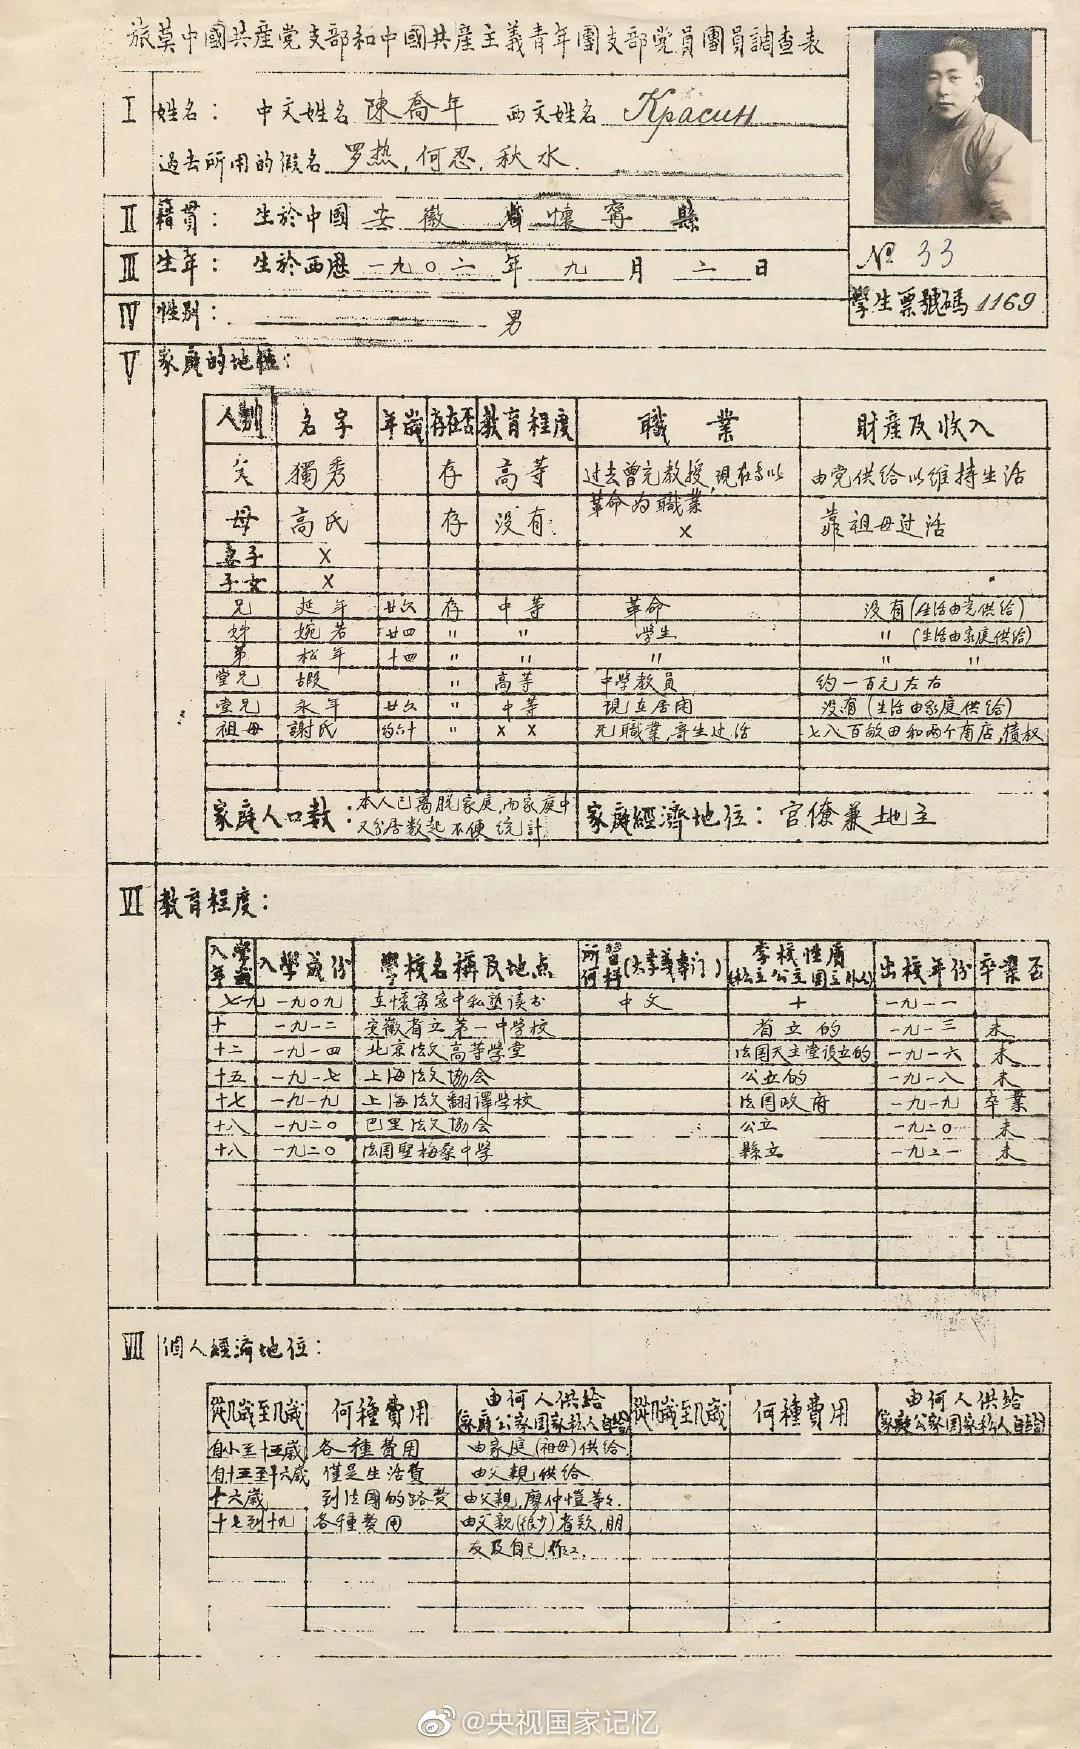 旅莫中國共產党支部和中國共產主義青年團支部党員團員調查表
I 姓名： 中文姓名 陳喬年 西文姓名 Красин
過去所用的假名 罗热，何忍，秋水．
II 籍貫： 生於中國 安徽 省 懷寧 縣
III 生年： 生於西歷 一九〇二 年 九 月 二 日
№ 33
IV 性别： 男
學生票號碼 1169
V 家庭的地位：
人别 名字 年歲 存在否 教育程度 職業 財產及收入
父 獨秀 存 高等 过去曾充教授，現在专以革命为職業 由党供给以维持生活
母 高氏 存 没有． × 靠祖母过活
妻子 ×
子女 ×
兄 延年 廿六 存 中等 革命 没有（生活由党供给）
姊 婉若 廿四 〃 〃 学生 〃 （生活由家庭供给）
弟 松年 十四 〃 〃 〃 〃 〃
堂兄 遐 〃 高等 中學教員 约一百元左右
堂兄 永年 廿六 〃 中等 現在居闲 没有（生活由家庭供给）
祖母 謝氏 约六十 〃 × × 无職業，寄生过活 七八百畝田和两个商店，債权
家庭人口數： 本人已离脱家庭，而家庭中又分居数起不便统計 家庭經濟地位： 官僚兼地主
VI 教育程度：
入學年歲 入學歲份 學校名稱及地点 所習何科(大學義專門) 李校性质(私立公立国立外人) 出校年份 卒業否
七九 一九〇九 在懷寧家中私塾读书 中文 十 一九一一
十 一九一二 安徽省立第一中学校 省立的 一九一三 未
十二 一九一四 北京法文高等学堂 法国天主堂设立的 一九一六 未
十五 一九一七 上海法文協会 公立的 一九一八 未
十七 一九一九 上海法文翻譯学校 法国政府 一九一九 卒業
十八 一九二〇 巴里法文協会 公立 一九二〇 未
十八 一九二〇 法国聖梅桑中学 縣立 一九二一 未
VII 個人經濟地位：
從几歲至几歲 何種費用 由何人供給(家庭公家国家私人自給) 從几歲至几歲 何種費用 由何人供給(家庭公家国家私人自給)
自小至十五歲 各種費用 由家庭（祖母）供给
自十五至十六歲 僅是生活費 由父親供给
十六歲 到法國的路费 由父親，廖仲愷等々．
十七到十九 各種費用 由父親（很少）者欵，朋
友及自己作工．
@央视国家记忆